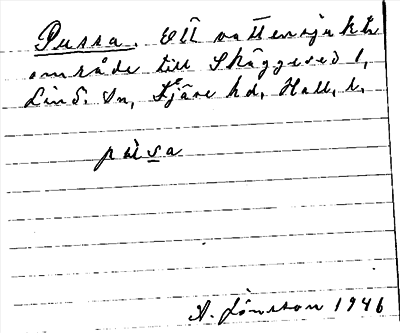 Pussa. Ett vattensjukt
område till Skäggesed 1,
Lind. sn, Fjäre hd, Hall. l.
pusa
A. Jönsson 1946